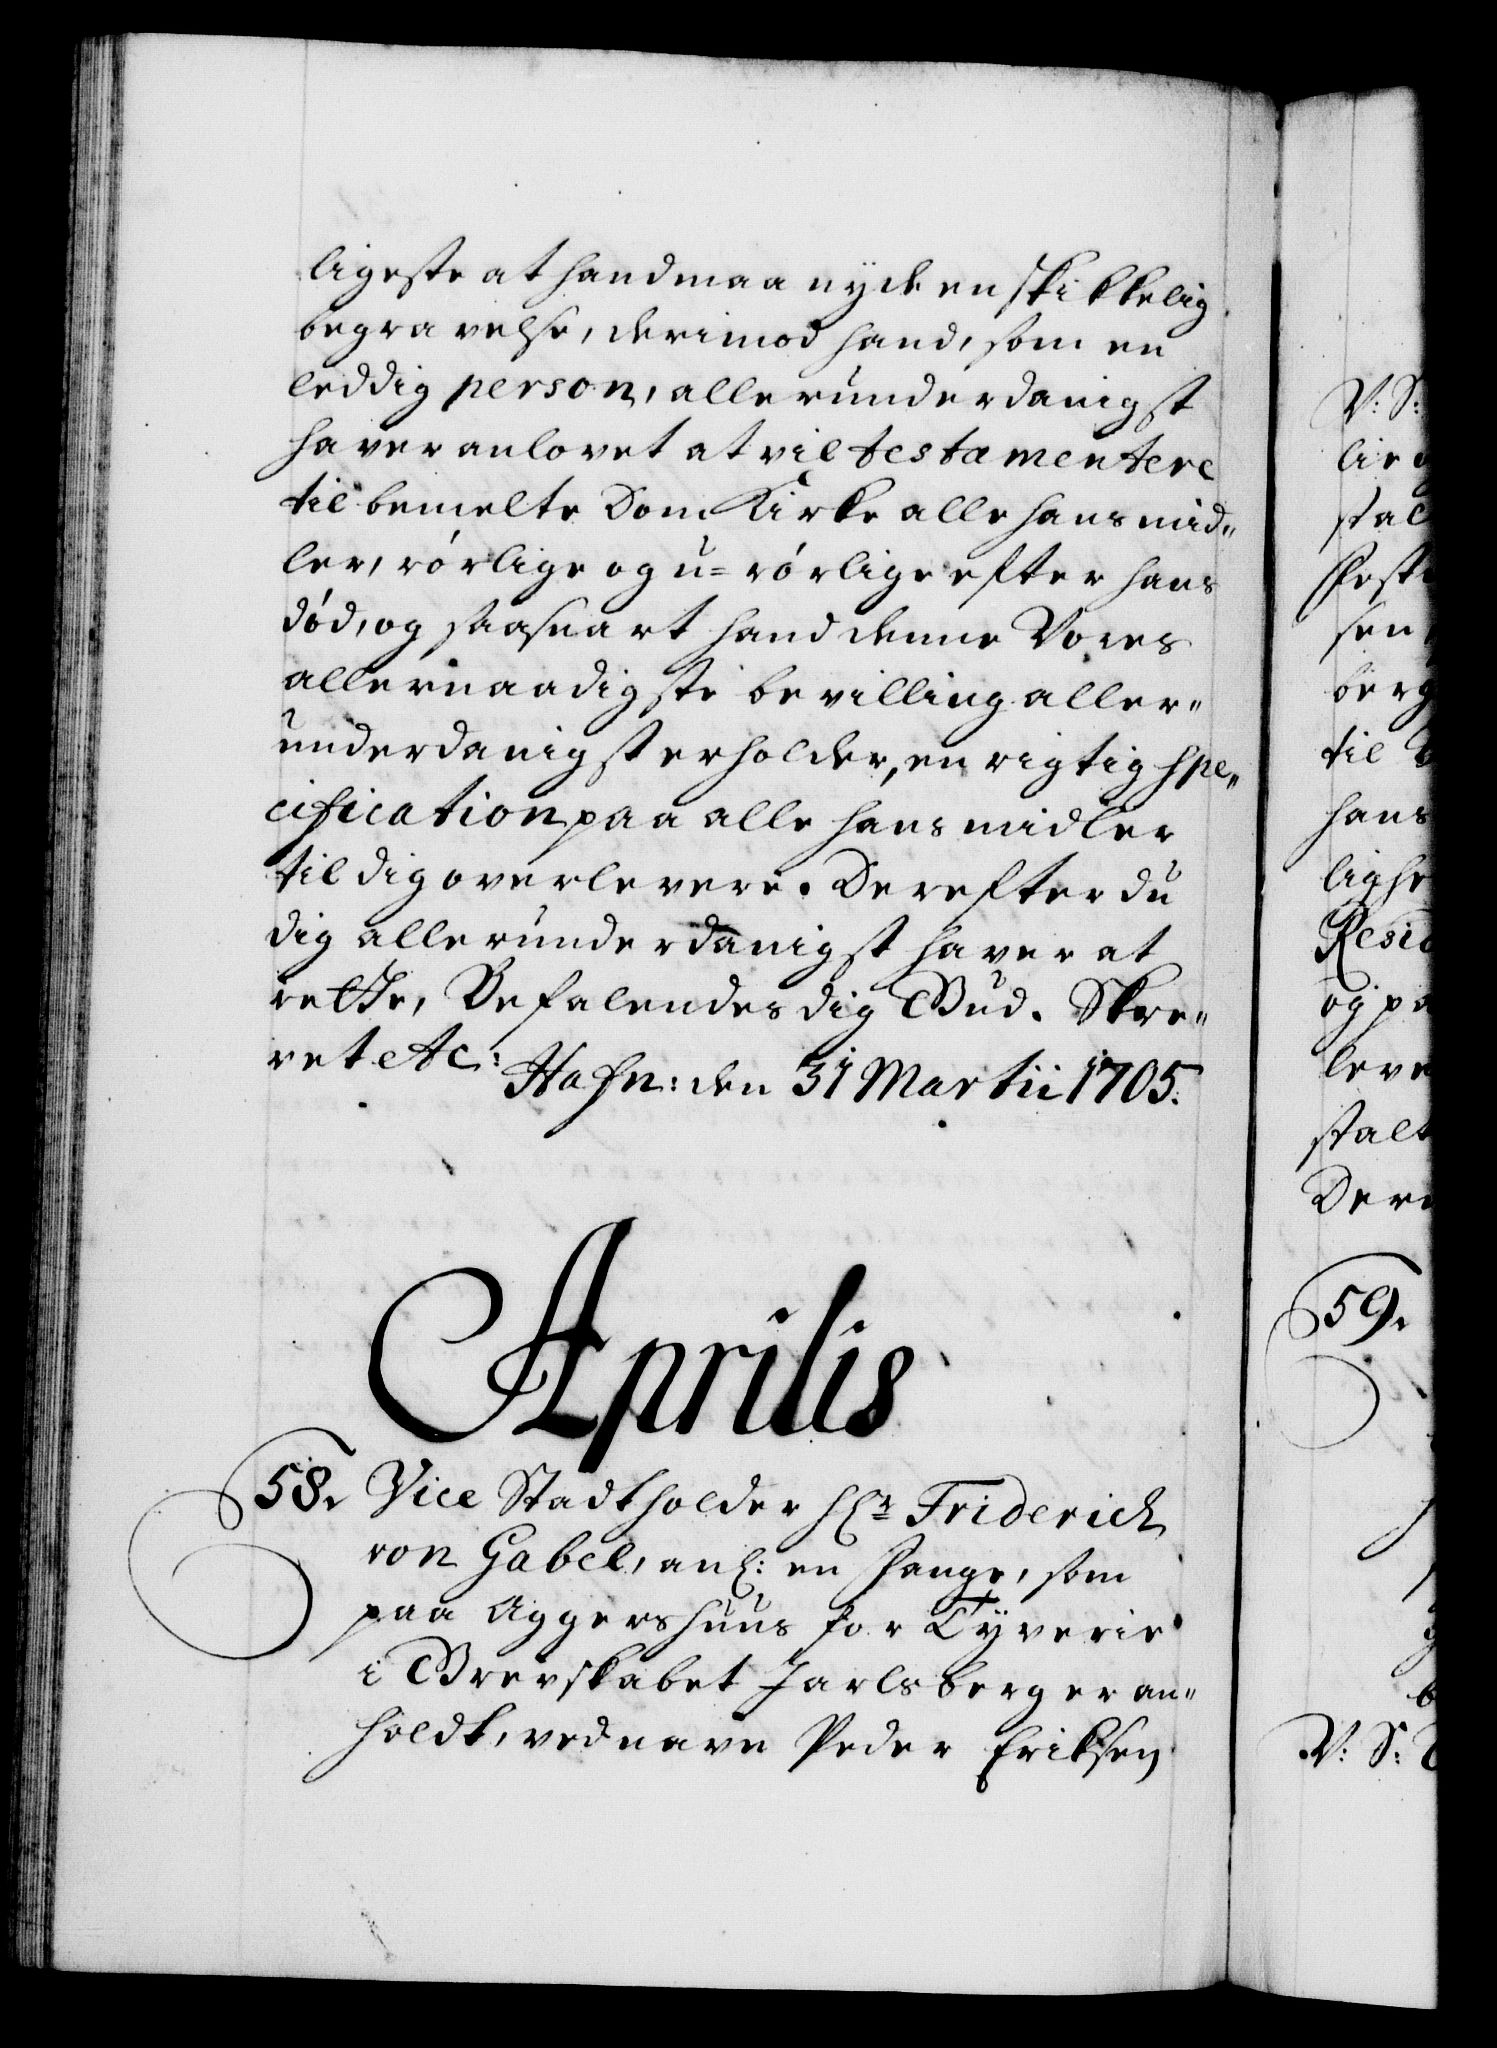 ligeste at hand maa nyde en skikkelig
begravelse, derimod hand, som en
leddig person, allerunderdanigst
haver anlovet at vil testamentere
til bemelte Dom Kirke alle hans mid„
ler, rørlige og u=rørlige efter hans
død, og saasnart hand denne Vores
allernaadigste bevilling aller„
underdanigst erholder, en rigtig spe„
cification paa alle hans midler
til dig overlevere. Derefter du
dig allerunderdanigst haver at
rette, Befalendes dig Gud. Skre„
vet etc:
Hafn: den 31 Martii 1705.
Aprilis
58. Vice Stadtholder Hr Friderich
von Gabel, anl: en Fange, som
paa Aggershuus for Tyverie
i Grevskabet Jarlsberg er an„
holdt, ved navn Peder Eriksen
V: S:
lie
stal
Post
sen
berg
til
hans
lighe
Resid
og pa
leve
stalt
Der
59.
V: S: